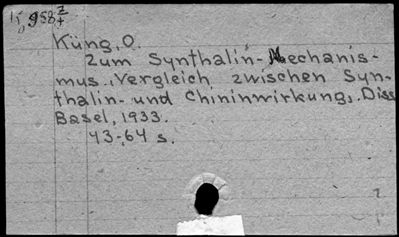 15,958 Z
+
Küng, O.
Zum Synthalin-Mechanis-
mus. Vergleich zwischen Syn-
thalin- und Chininwirkung. Diss
Basel, 1933.
43-64 s.
?